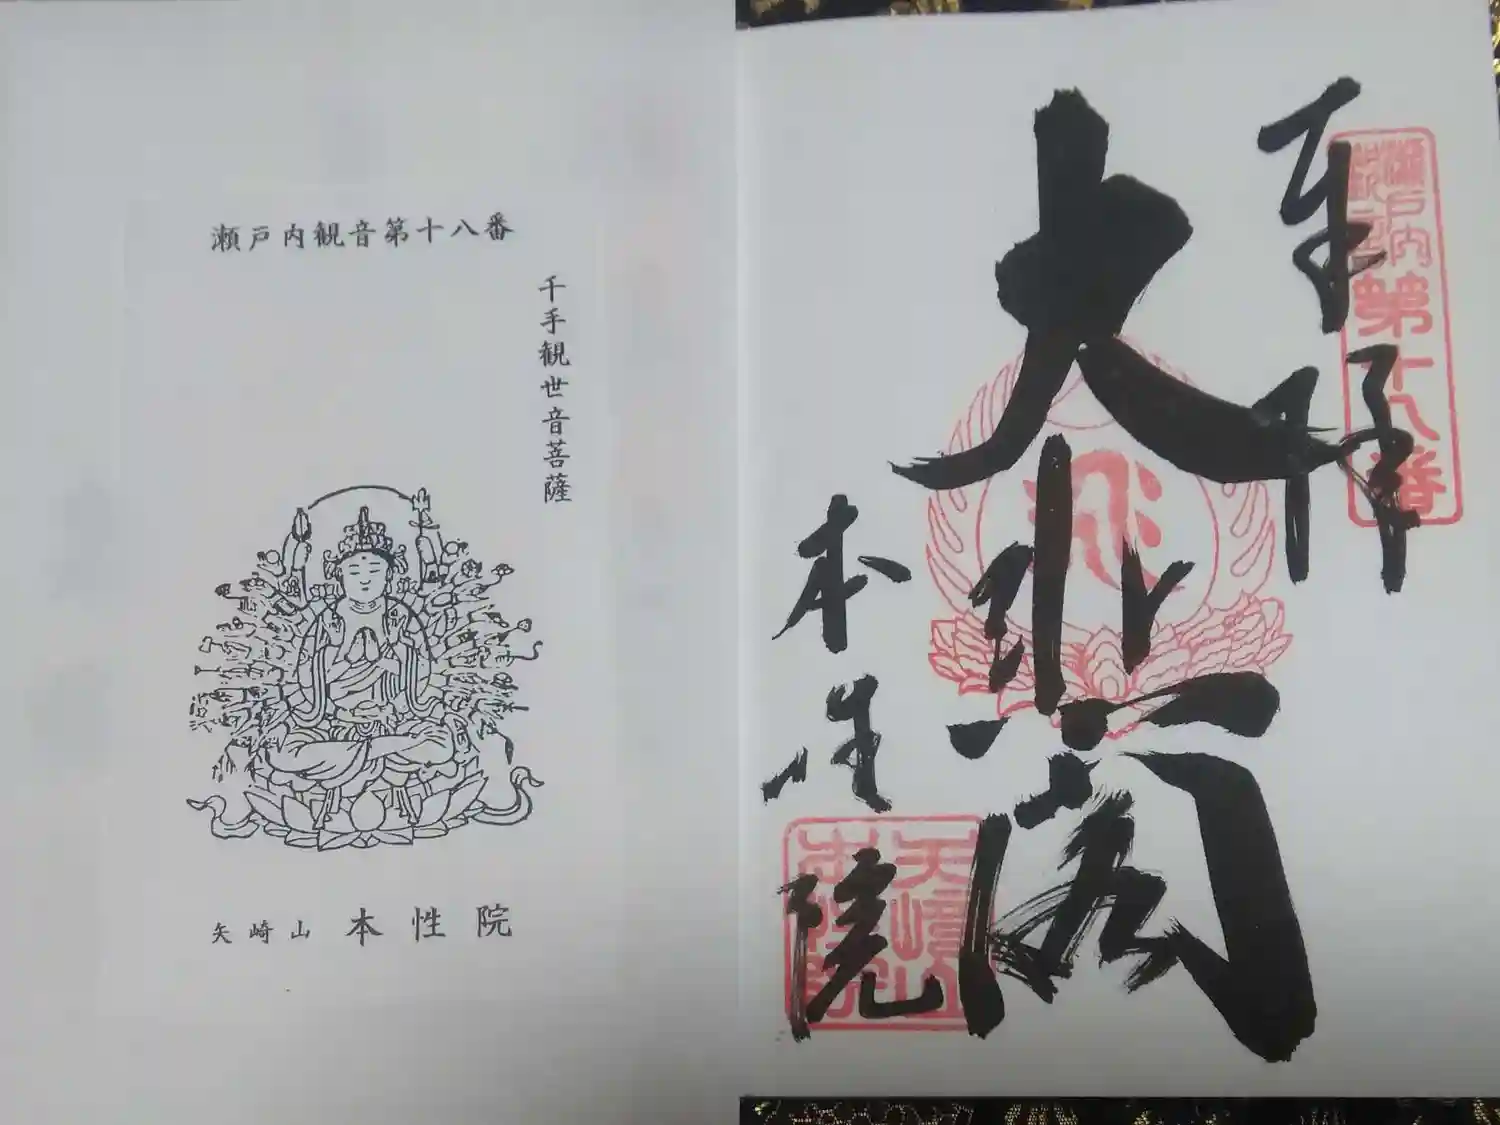 瀬戸内観音第十八番
千手観世音菩薩
矢崎山 本性院
奉拝
瀬戸内観音第十八番
大悲閣
本性院
矢崎山本性院